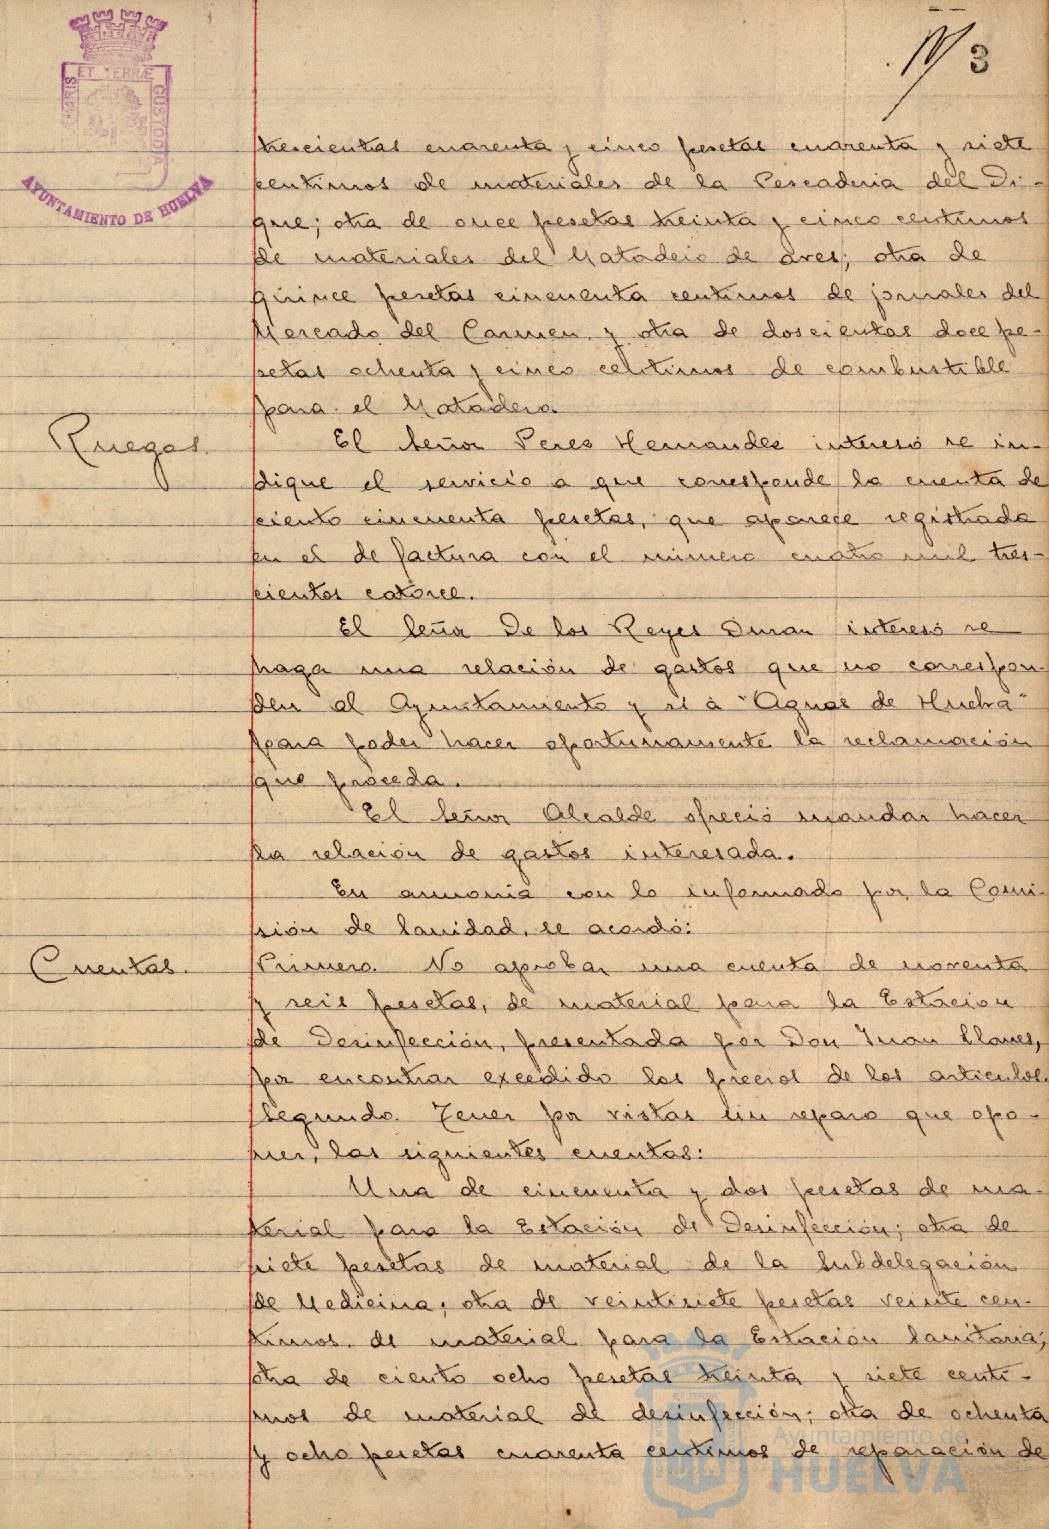 3
ET TERRÆ
MARIS
CUSTODIA
AYUNTAMIENTO DE HUELVA
trescientas cuarenta y cinco pesetas cuarenta y siete
centimos de materiales de la Pescaderia del Di-
que; otra de once pesetas treinta y cinco centimos
de materiales del Matadero de aves; otra de
quince pesetas cincuenta centimos de jornales del
Mercado del Carmen, y otra de doscientas doce pe-
setas ochenta y cinco centimos de combustible
para el Matadero.
Ruegos.
El Señor Perez Hernandez interesó se in-
dique el servicio a que corresponde la cuenta de
ciento cincuenta pesetas, que aparece registrada
en el de factura con el número cuatro mil tres-
cientos catorce.
El Señor De los Reyes Duran interesó se
haga una relación de gastos que no correspon-
den al Ayuntamiento y si á "Aguas de Huelva"
para poder hacer oportunamente la reclamación
que proceda.
El Señor Alcalde ofreció mandar hacer
la relación de gastos interesada.
En armonia con lo informado por la Comi-
sión de Sanidad, se acordó:
Cuentas.
Primero. No aprobar una cuenta de noventa
y seis pesetas, de material para la Estacion
de Desinfección, presentada por Don Juan Llanes,
por encontrar excedido los precios de los articulos.
Segundo. Tener por vistas sin reparo que opo-
ner, las siguientes cuentas:
Una de cincuenta y dos pesetas de ma-
terial para la Estación de Desinfección; otra de
siete pesetas de material de la Subdelegación
de Medicina; otra de veintisiete pesetas veinte cen-
timos de material para la Estación Sanitaria;
otra de ciento ocho pesetas treinta y siete centi-
mos de material de desinfección; otra de ochenta
y ocho pesetas cuarenta centimos de reparación de
Ayuntamiento de
HUELVA